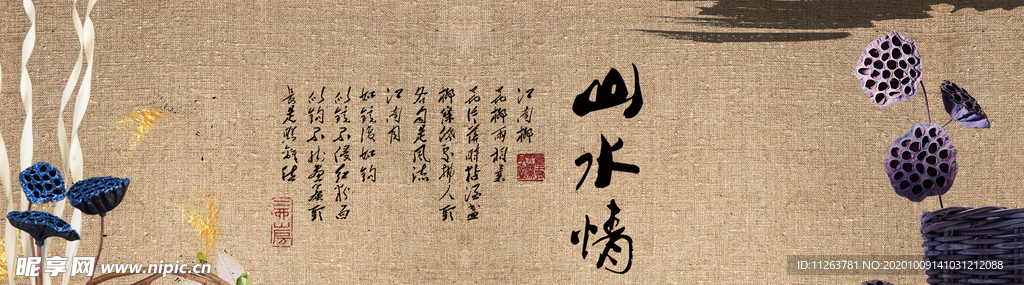 山水情
江南柳
花柳两相柔
花片落时黏酒盏
柳条低处拂人头
各自是风流
江南月
如镜复如钩
似镜不侵红粉面
似钩不挂画帘头
长是照离愁
昵享网 www.nipic.cn
ID:11263781 NO:20201009141031212088